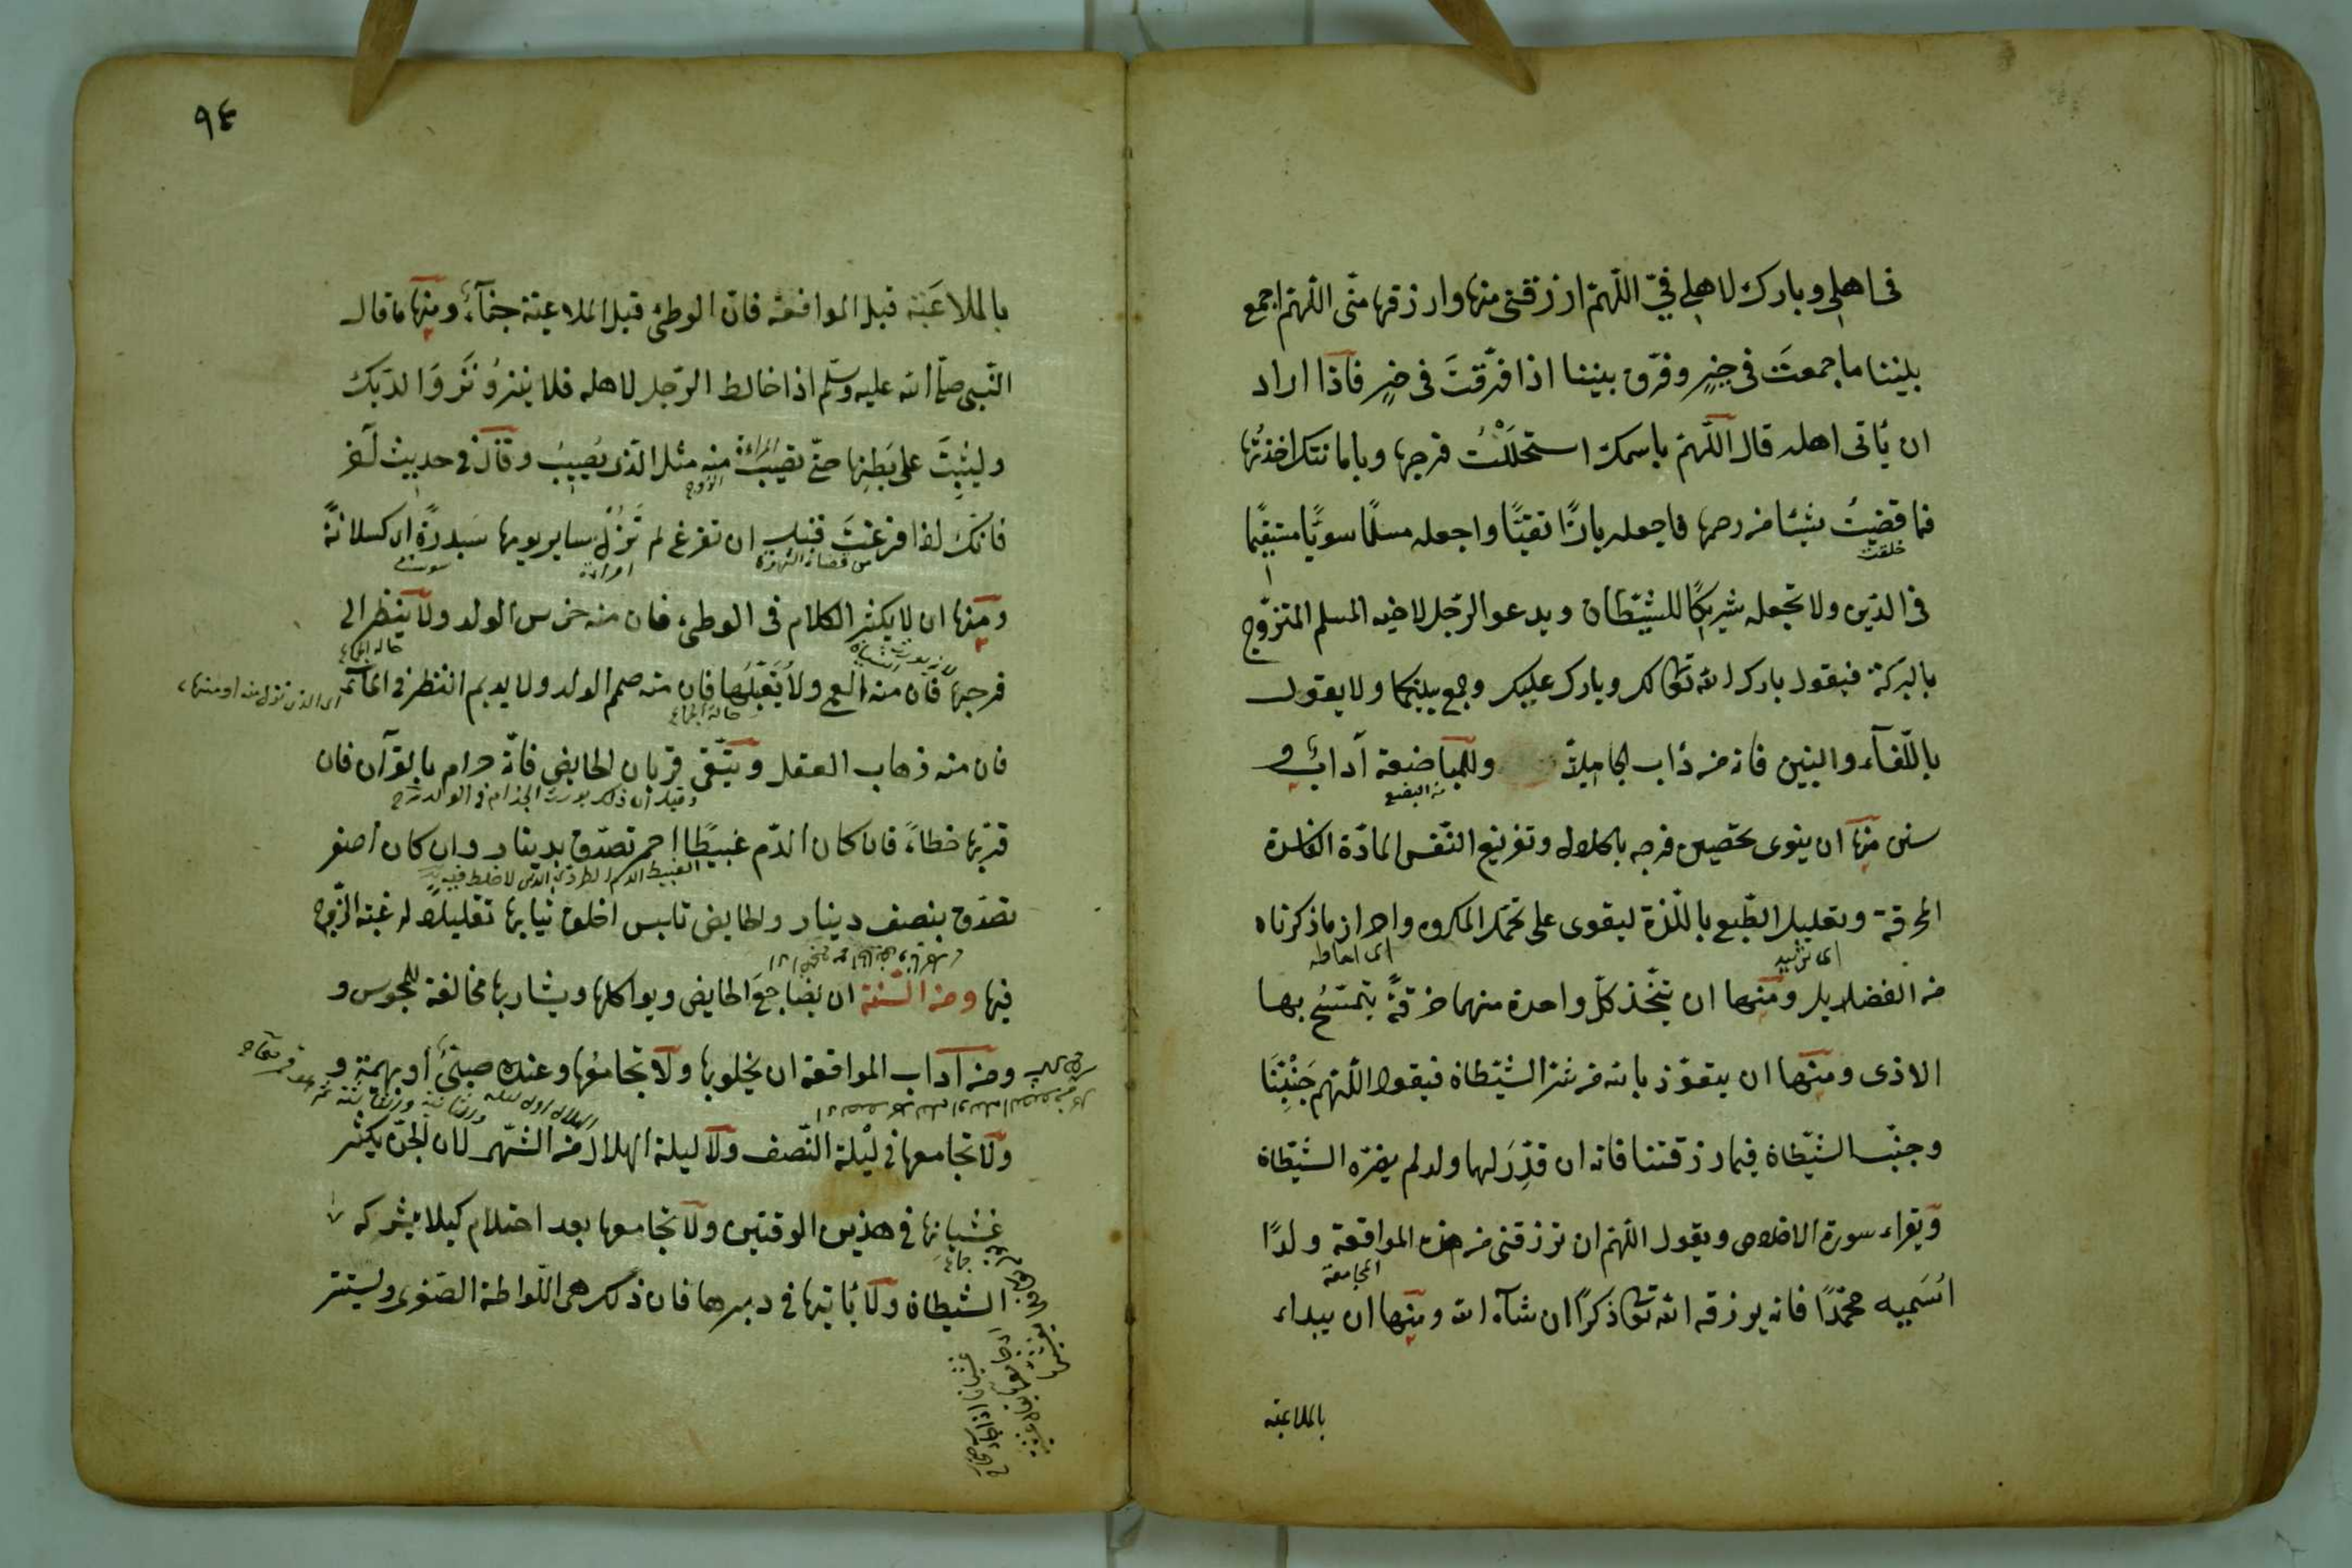 فى اهلى وبارك لاهلى فىّ اللّهمّ ارزقنى منها وارزقها منّى اللّهمّ اجمع
بيننا ما جمعتَ فى خيرٍ وفرّق بيننا اذا فرّقتَ فى خيرٍ فاذا اراد
ان يأتى اهله قال اللّهمّ باسمك استحلَلْتُ فرجها وبامانتك اخذتُها
فما قضيتَ شيئا من رحمها فاجعله بارًّا نقيًّا واجعله مسلمًا سويًّا مستقيمًا
خلقت
فى الدّين ولا تجعله شريكًا للشّيطان ويدعو الرّجل لاخيه المسلم المتزوّج
بالبركة فيقول بارك الله تعالى لك وبارك عليك وجمع بينكما ولا يقول
بالرّفآء والبنين فانه من دأب الجاهليّة وللمباضعة آداب و
من البضع
سنن منها ان ينوى تحصين فرجه بالحلال وتفريغ النّفس المادّة الفاسدة
المحرقة وتعليل الطّبع باللّذة ليقوى على تحمّل المكروه واحراز ما ذكرناه
اى احاطه
من الفضايل ومنها ان يتّخذ كلّ واحدة منهما خرقةً يتمسّح بها
الاذى ومنها ان يتعوّذ بالله من شرّ الشّيطان فيقول اللّهمّ جَنِّبْنَا
وجنّب الشّيطان فيما رزقتنا فانه ان قدّرَ لهما ولد لم يضرّه الشّيطان
ويقراء سورة الاخلاص ويقول اللّهمّ ان ترزقنى من هذه المواقعة ولدًا
المجامعة
اُسَميه محمّدًا فانه يرزقه الله تعالى ذكرًا ان شآء الله ومنها ان يبداء
بالملاعبة
٩٤
بالملاعَبة قبل المواقعة فانّ الوطئ قبل الملاعبة جفآء ومنها ما قال
النّبىّ صلّى الله عليه وسلّم اذا خالط الرّجل لاهله فلا ينزُو نَزْوَ الدّيك
وليثبتْ على بَطنِها حتّى تصيبَ منه مثل الّذى يُصيبُ وقال فى حديث آخر
المراءة
الزوج
فانّك اذا فرغتَ قبل ان تفرغ لم تَزُلْ ساير يومها سَدِرةً اى كسلانةً
من قضاء الشهوة
ومنها ان لا يكثر الكلام فى الوطئ فان منه خرس الولد ولا ينظر الى
حالة الجماع
فرجها فان منه العمى ولا يُقبّلها فان منه صمم الولد ولا يديم النظر فى الماء
حالة الجماع
فان منه ذهاب العقل ويتّقى قربان الحايض فانّه حرام بالقرآن فان
وقيل ان ذلك يورث الجذام فى الولد
قربها خطاءً فان كان الدّم عبيطًا احمر تصدّق بدينار وان كان اصفر
العبيط الدم الطرىّ الذى لا خلط فيه
تصدّق بنصف دينار والحايض تلبس اخلق ثيابها تقليلا لرغبة الزّوج
فيها ومن السّنّة ان يضاجعَ الحايض ويواكلها ويشاربها مخالفة للمجوس و
ومن آداب المواقعة ان يخلو بها ولا يجامعُها وعنده صبىّ او بهيمة و
ولا يجامعها فى ليلة النّصف ولا ليلة الهلال من الشّهر لان الجنّ يكثر
غشيانها فى هذين الوقتين ولا يجامعها بعد احتلام كيلا يشركه
الشيطان ولا يأتيها فى دبرها فان ذلك هى اللّواطة الصّغرى ويستتر